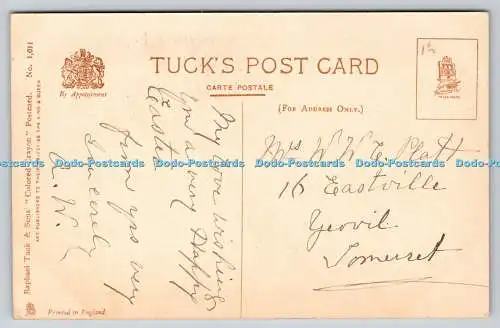 TUCK'S POST CARD
CARTE POSTALE
(FOR ADDRESS ONLY.)
By Appointment
Raphael Tuck & Sons' "Colored Crayon" Postcard. No. 1,011
ART PUBLISHERS TO THEIR MAJESTIES THE KING & QUEEN
Printed in England.
My love wishing
you a very Happy
Easter
from yrs very
Sincerely
A. W.
Mrs W. W. E. Platt
16 Eastville
Yeovil
Somerset
Dodo-Postcards Dodo-Postcards Dodo-Postcards Dodo-Postcards Dodo-Postcards Dodo-Postcards